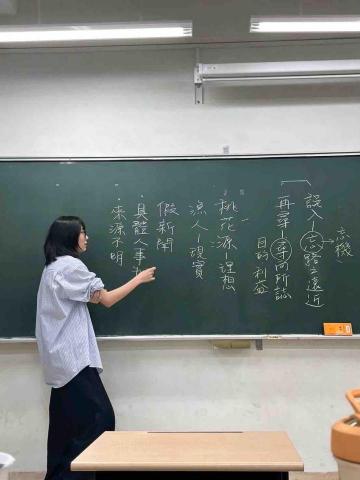 誤入－忘路之遠近
忘機
再尋－尋向所誌
目的 利益
桃花源－理想
漁人－現實
假新聞
·具體人事
·來源不明